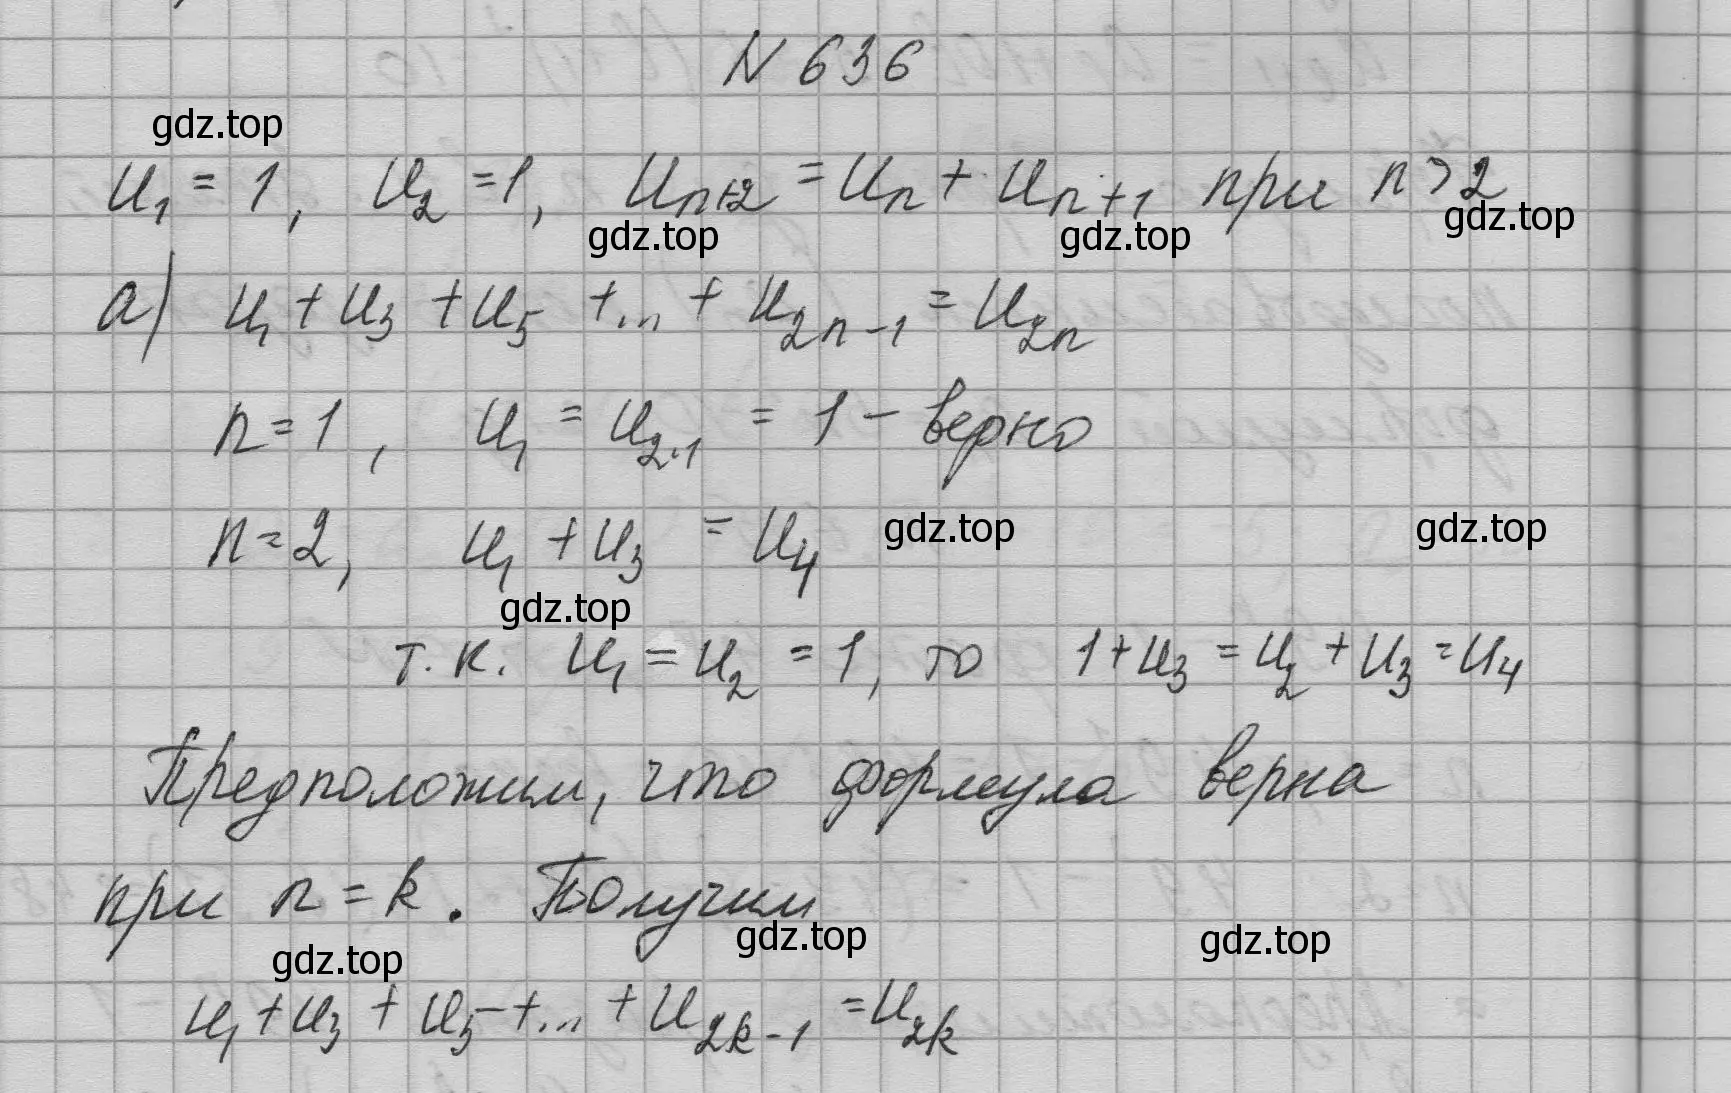 N 636
gdz.top
u₁ = 1, u₂ = 1, uₙ₊₂ = uₙ + uₙ₊₁ при n > 2
gdz.top gdz.top gdz.top
а) u₁ + u₃ + u₅ + ... + u₂ₙ₋₁ = u₂ₙ
n = 1, u₁ = u₂.₁ = 1 - верно
n = 2, u₁ + u₃ = u₄ gdz.top gdz.top
gdz.top
т.к. u₁ = u₂ = 1, то 1 + u₃ = u₂ + u₃ = u₄
Предположим, что формула верна
при n = k. Получим
gdz.top gdz.top gdz.top
u₁ + u₃ + u₅ + ... + u₂ₖ₋₁ = u₂ₖ